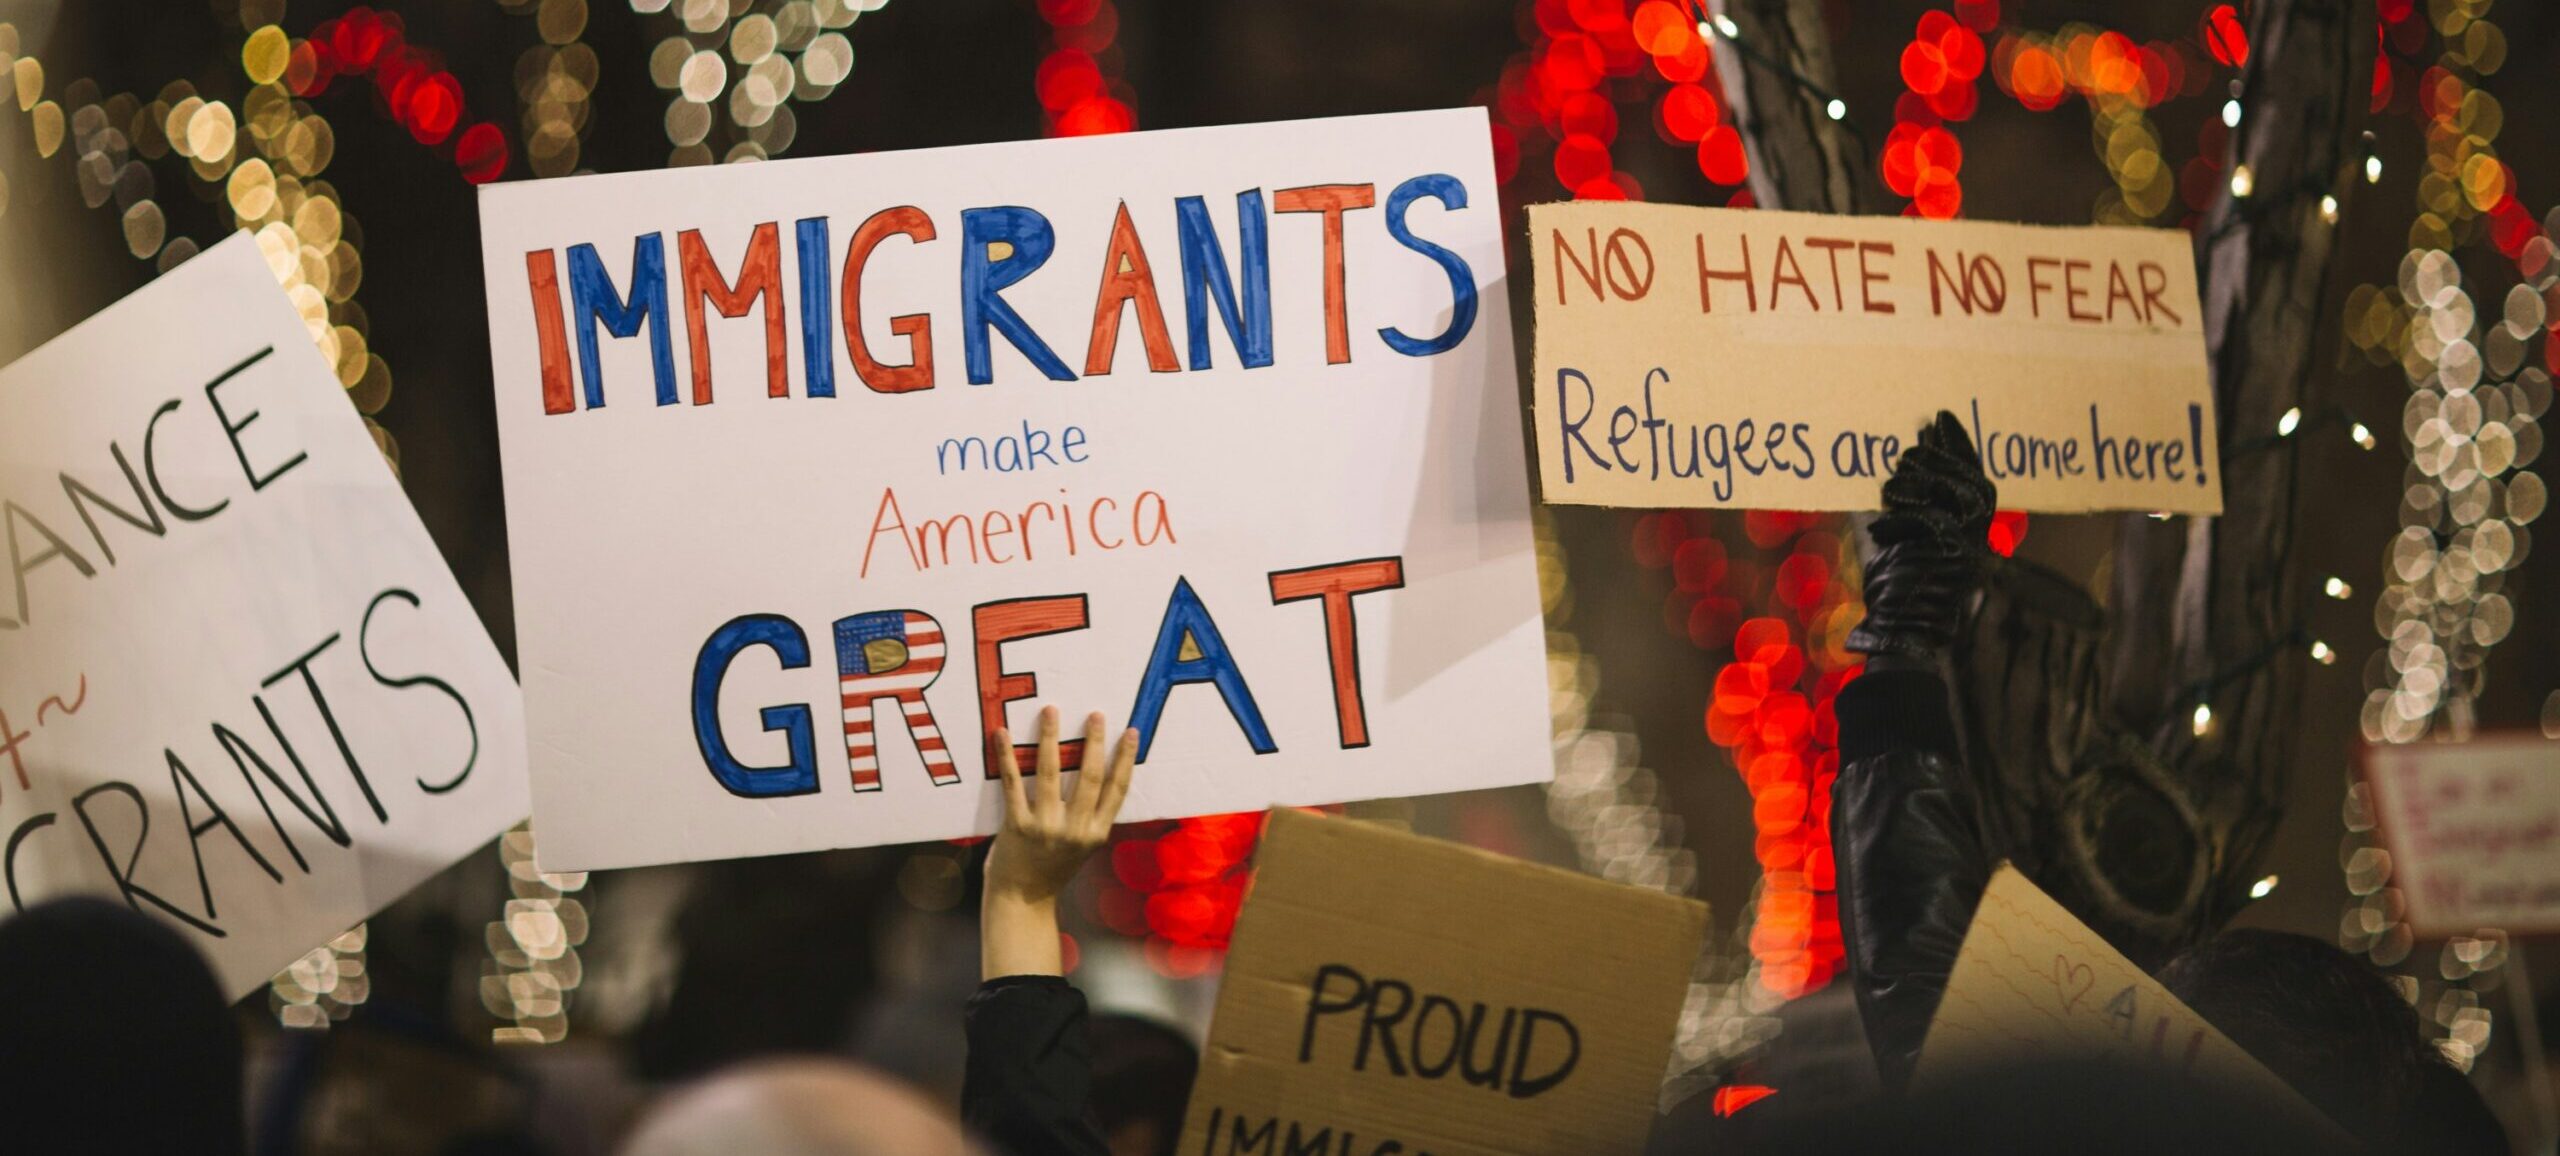 ANCE
GRANTS
IMMIGRANTS
make
America
GREAT
NO HATE NO FEAR
Refugees are welcome here!
PROUD
IMMIG